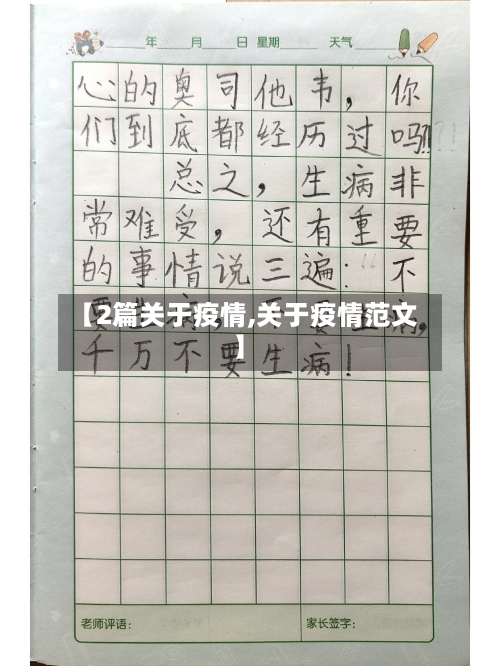 年 月 日 星期 天气
心的奥司他韦，你
们到底都经历过吗?!!
总之，生病非
常难受，还有重要
的事情说三遍：不
【2篇关于疫情,关于疫情范文】
千万不要生病！
老师评语： 家长签字：